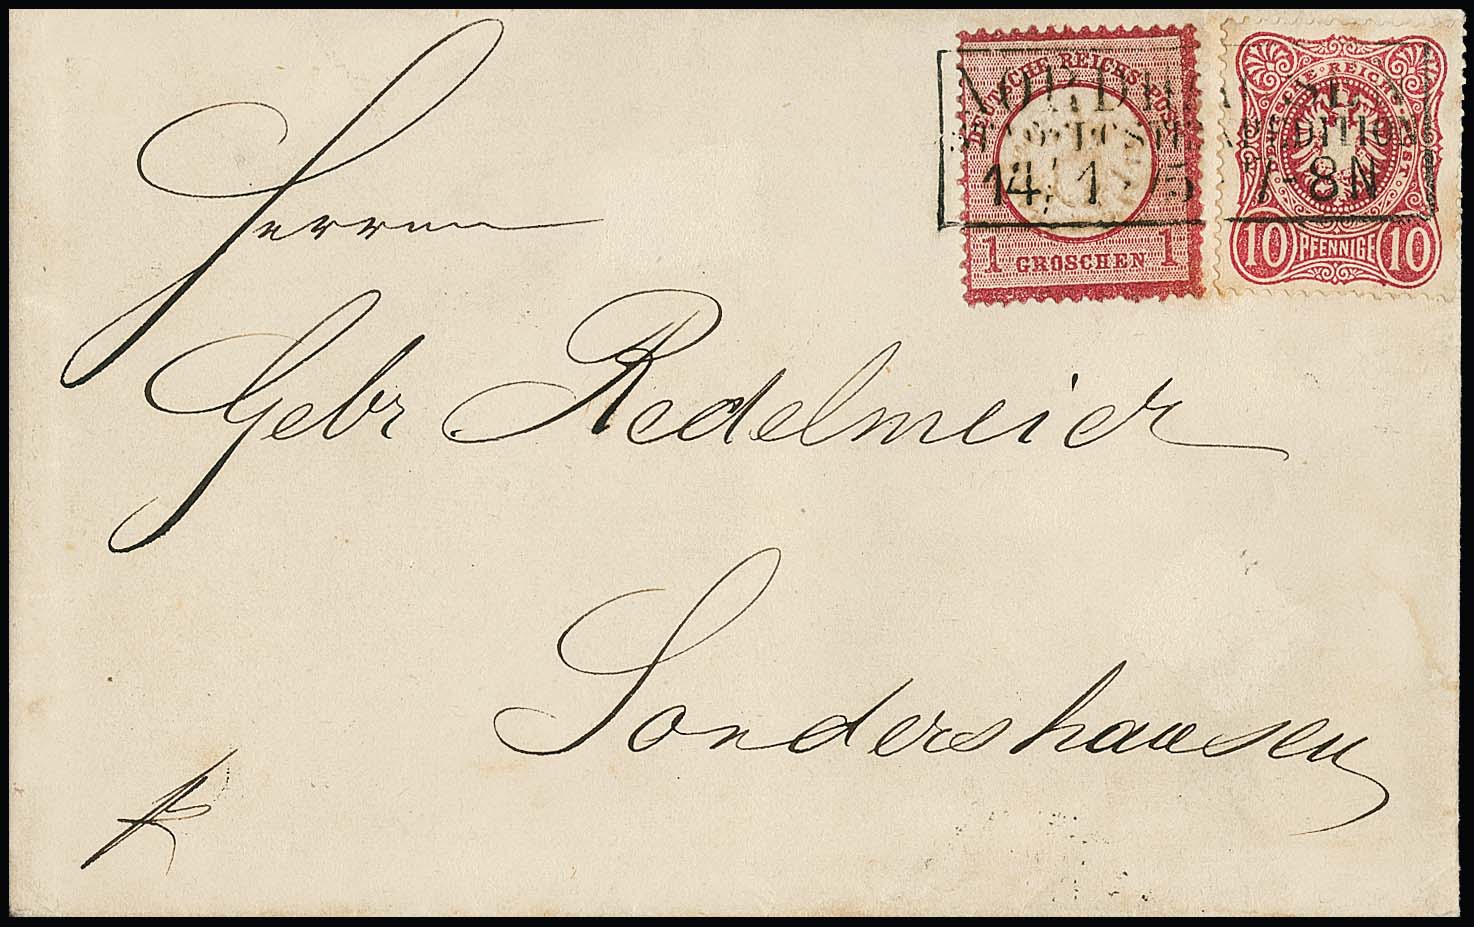 DEUTSCHE REICHS-POST
1 GROSCHEN 1
DEUTSCHE REICHS-POST
10 PFENNIGE 10
14 1 75
7-8N
Herren
Gebr Redelmeier
Sondershausen